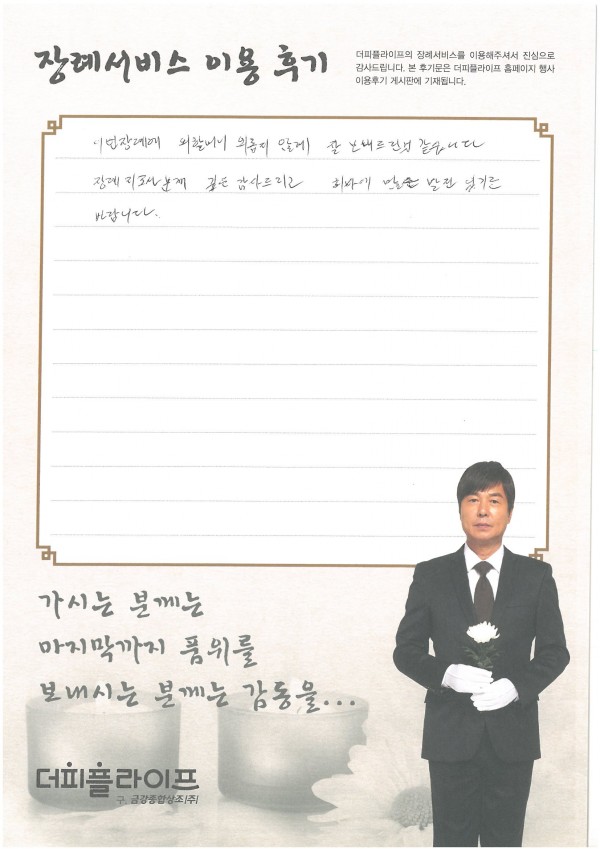 장례서비스 이용 후기
더피플라이프의 장례서비스를 이용해주셔서 진심으로
감사드립니다. 본 후기문은 더피플라이프 홈페이지 행사
이용후기 게시판에 기재됩니다.
이번장례에 외할머니 외롭지 않게 잘 보내드린것 같습니다
장례 지도사분께 깊은 감사드리고 회사에 많은 발전 있기를
바랍니다.
가시는 분께는
마지막까지 품위를
보내시는 분께는 감동을...
더피플라이프
구. 금강종합상조(주)